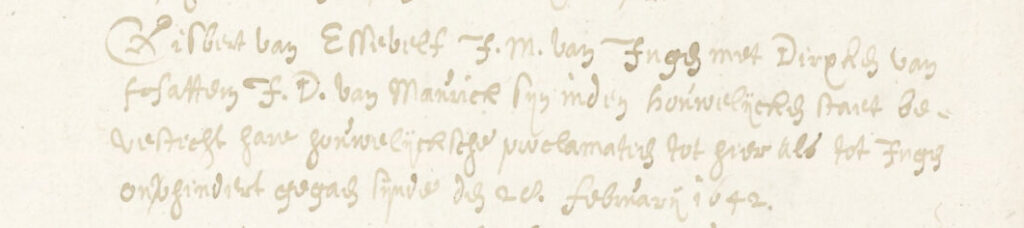 Gisbert van Essevelt J. M. van Ingen met Dirxken van
J. D. van Maurick syn in den houwelycken staet be-
vesticht hare houwelycksche proclamatien tot hier als tot Ingen
onverhindert gegaen synde den februarij 1642.